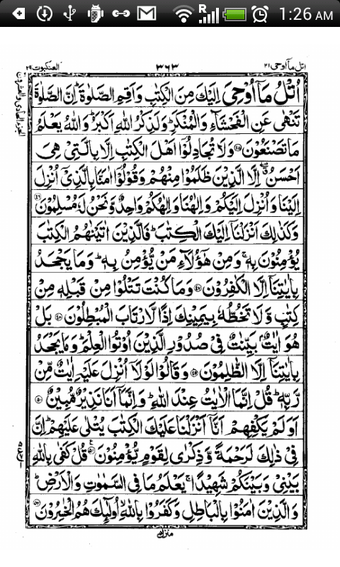 1:26 AM
اتل مآ اوحی ۲۱ ۳۶۳ العنكبوت ۲۹
اُتْلُ مَآ اُوْحِیَ اِلَیْكَ مِنَ الْكِتٰبِ وَاَقِمِ الصَّلٰوةَ اِنَّ الصَّلٰوةَ
تَنْهٰی عَنِ الْفَحْشَآءِ وَالْمُنْكَرِ وَلَذِكْرُ اللّٰهِ اَكْبَرُ وَاللّٰهُ یَعْلَمُ
مَا تَصْنَعُوْنَ وَلَا تُجَادِلُوْٓا اَهْلَ الْكِتٰبِ اِلَّا بِالَّتِیْ هِیَ
اَحْسَنُ اِلَّا الَّذِیْنَ ظَلَمُوْا مِنْهُمْ وَقُوْلُوْٓا اٰمَنَّا بِالَّذِیْٓ اُنْزِلَ
اِلَیْنَا وَاُنْزِلَ اِلَیْكُمْ وَاِلٰهُنَا وَاِلٰهُكُمْ وَاحِدٌ وَّنَحْنُ لَهٗ مُسْلِمُوْنَ
وَكَذٰلِكَ اَنْزَلْنَآ اِلَیْكَ الْكِتٰبَ فَالَّذِیْنَ اٰتَیْنٰهُمُ الْكِتٰبَ
یُؤْمِنُوْنَ بِهٖ وَمِنْ هٰٓؤُلَآءِ مَنْ یُّؤْمِنُ بِهٖ وَمَا یَجْحَدُ
بِاٰیٰتِنَآ اِلَّا الْكٰفِرُوْنَ وَمَا كُنْتَ تَتْلُوْا مِنْ قَبْلِهٖ مِنْ
كِتٰبٍ وَّلَا تَخُطُّهٗ بِیَمِیْنِكَ اِذًا لَّارْتَابَ الْمُبْطِلُوْنَ بَلْ
هُوَ اٰیٰتٌۢ بَیِّنٰتٌ فِیْ صُدُوْرِ الَّذِیْنَ اُوْتُوا الْعِلْمَ وَمَا یَجْحَدُ
بِاٰیٰتِنَآ اِلَّا الظّٰلِمُوْنَ وَقَالُوْا لَوْلَآ اُنْزِلَ عَلَیْهِ اٰیٰتٌ مِّنْ
رَّبِّهٖ قُلْ اِنَّمَا الْاٰیٰتُ عِنْدَ اللّٰهِ وَاِنَّمَآ اَنَا نَذِیْرٌ مُّبِیْنٌ
اَوَلَمْ یَكْفِهِمْ اَنَّآ اَنْزَلْنَا عَلَیْكَ الْكِتٰبَ یُتْلٰی عَلَیْهِمْ اِنَّ
فِیْ ذٰلِكَ لَرَحْمَةً وَّذِكْرٰی لِقَوْمٍ یُّؤْمِنُوْنَ قُلْ كَفٰی بِاللّٰهِ
بَیْنِیْ وَبَیْنَكُمْ شَهِیْدًا یَعْلَمُ مَا فِی السَّمٰوٰتِ وَالْاَرْضِ
وَالَّذِیْنَ اٰمَنُوْا بِالْبَاطِلِ وَكَفَرُوْا بِاللّٰهِ اُولٰٓئِكَ هُمُ الْخٰسِرُوْنَ